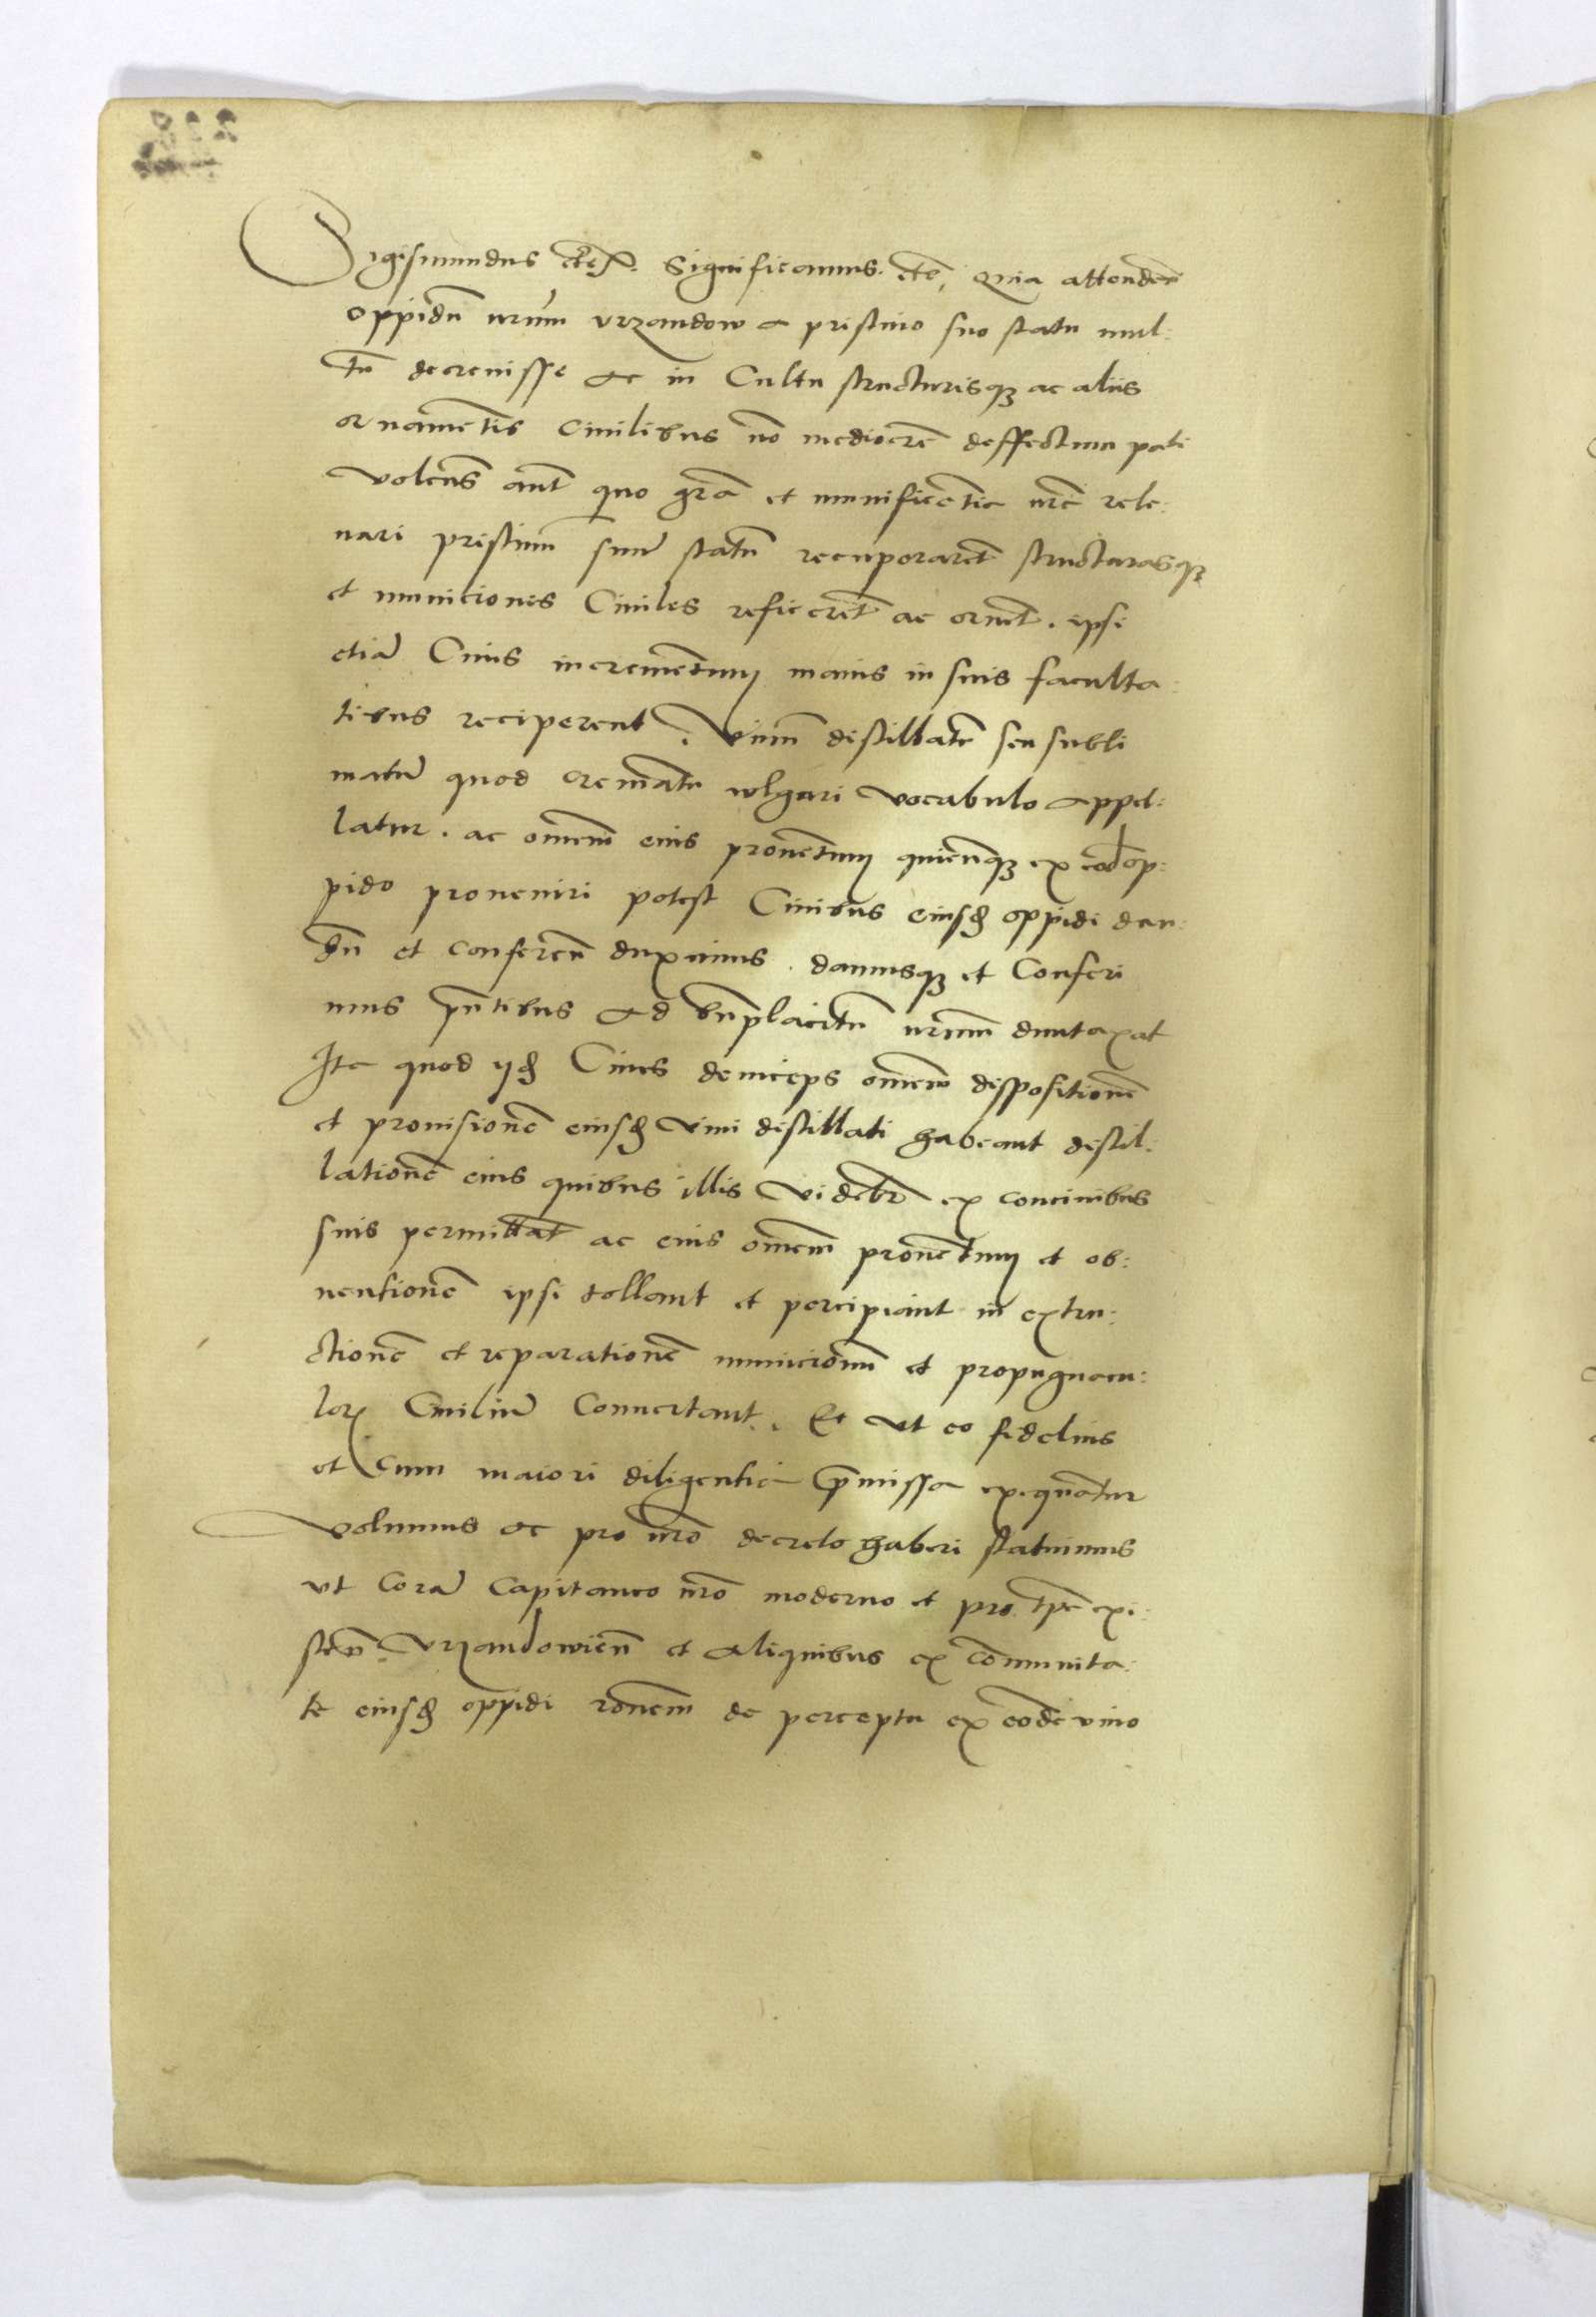 Sigismundus etc. Significamus. etc, Quia attenden̄
oppidū nrūm vrzandow a pristino suo statu mul:
tū decreuisse ac in Cultu structurisqȝ ac aliis
ornamētis Ciuilibus nō mediocrē deffectum pati
Volens aūt quo gr̄a et munificētia nr̄a rele:
uari pristinū suū statū recuperaret structurasqȝ
et municiones Ciuiles reficeret ac ornet. ipsi
etiā Ciues incrementum maius in suis faculta:
tibus reciperent. Vinū destillatū seu subli
matū quod crematū wlgari Vocabulo appel:
latur. ac omnem eius prouentum quicunqȝ ex eod op:
pido proueniri potest Ciuibus eiusd oppidi dan:
dū et conferēn duximus. damusqȝ et Conferi
mus p̄ntibus ad bn̄placitū nrūm duntaxat
Ita quod ijd Ciues deinceps omnem dispositionē
et prouisionē eiusd Vini destillati habeant destil:
lationē eius quibus illis Videbr̄ ex conciuibus
suis permittāt ac eius omnem prouentum et ob:
uentionē ipsi tollant et percipiant in extru:
ctionē et reparationē municionū et propugnacu:
lorꝝ Ciuiliū Conuertant. Et Vt eo fidelius
et Cum maiori diligentia p̄missa exequātur
Volumus ac pro nrō decreto haberi statuimus
vt Corā Capitaneo nrō moderno et pro tp̄e exi:
sten̄. Vrzandowien̄ et aliquibus ex Cōmunita:
te eiusd oppidi rōnem de perceptu ex eodē vino